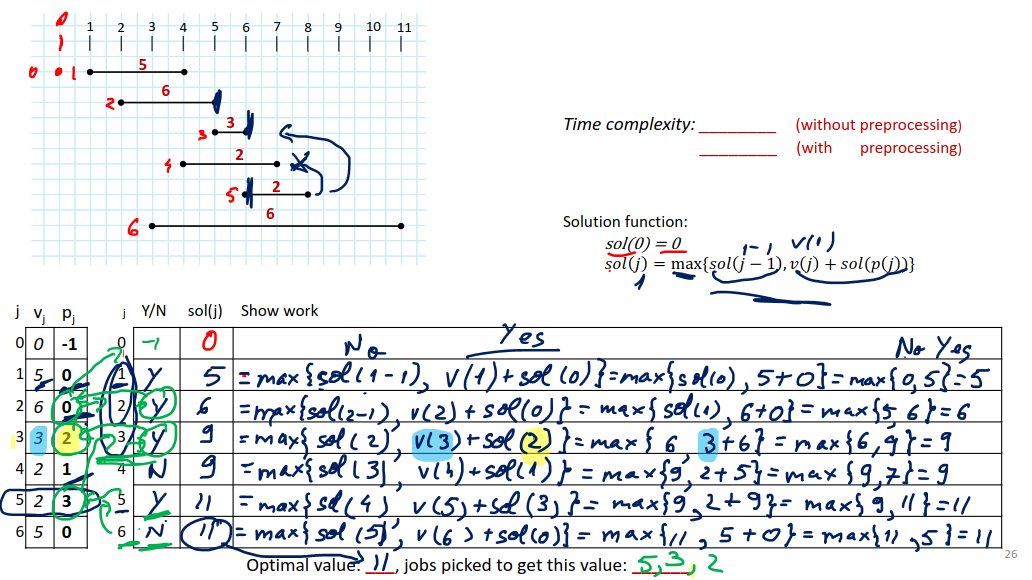 0
1 2 3 4 5 6 7 8 9 10 11
0 1 5
2 6
3 3
4 2
5 2
6 6
Time complexity: ________ (without preprocessing)
________ (with preprocessing)
Solution function:
sol(0) = 0
1-1 v(1)
sol(j) = max{sol(j − 1), v(j) + sol(p(j))}
1
j vj pj j Y/N sol(j) Show work
0 0 -1 0 -1 0 No Yes No Yes
1 5 0 1 Y 5 = max{sol(1-1), v(1)+sol(0)}=max{sol(0), 5+0}=max{0,5}=5
2 6 0 2 Y 6 =max{sol(2-1), v(2)+sol(0)}= max{sol(1), 6+0}=max{5 6}=6
3 3 2 3 Y 9 =max{sol(2), v(3)+sol(2)}=max{6 3+6}= max{6,9}=9
4 2 1 4 N 9 =max{sol(3), v(4)+sol(1)}= max{9, 2+5}=max{9,7}=9
5 2 3 5 Y 11 =max{sol(4) v(5)+sol(3)}= max{9, 2+9}= max{9,11}=11
6 5 0 6 N 11 =max{sol(5), v(6)+sol(0)}= max{11, 5+0}=max{11,5}=11
Optimal value: 11, jobs picked to get this value: 5, 3, 2
26